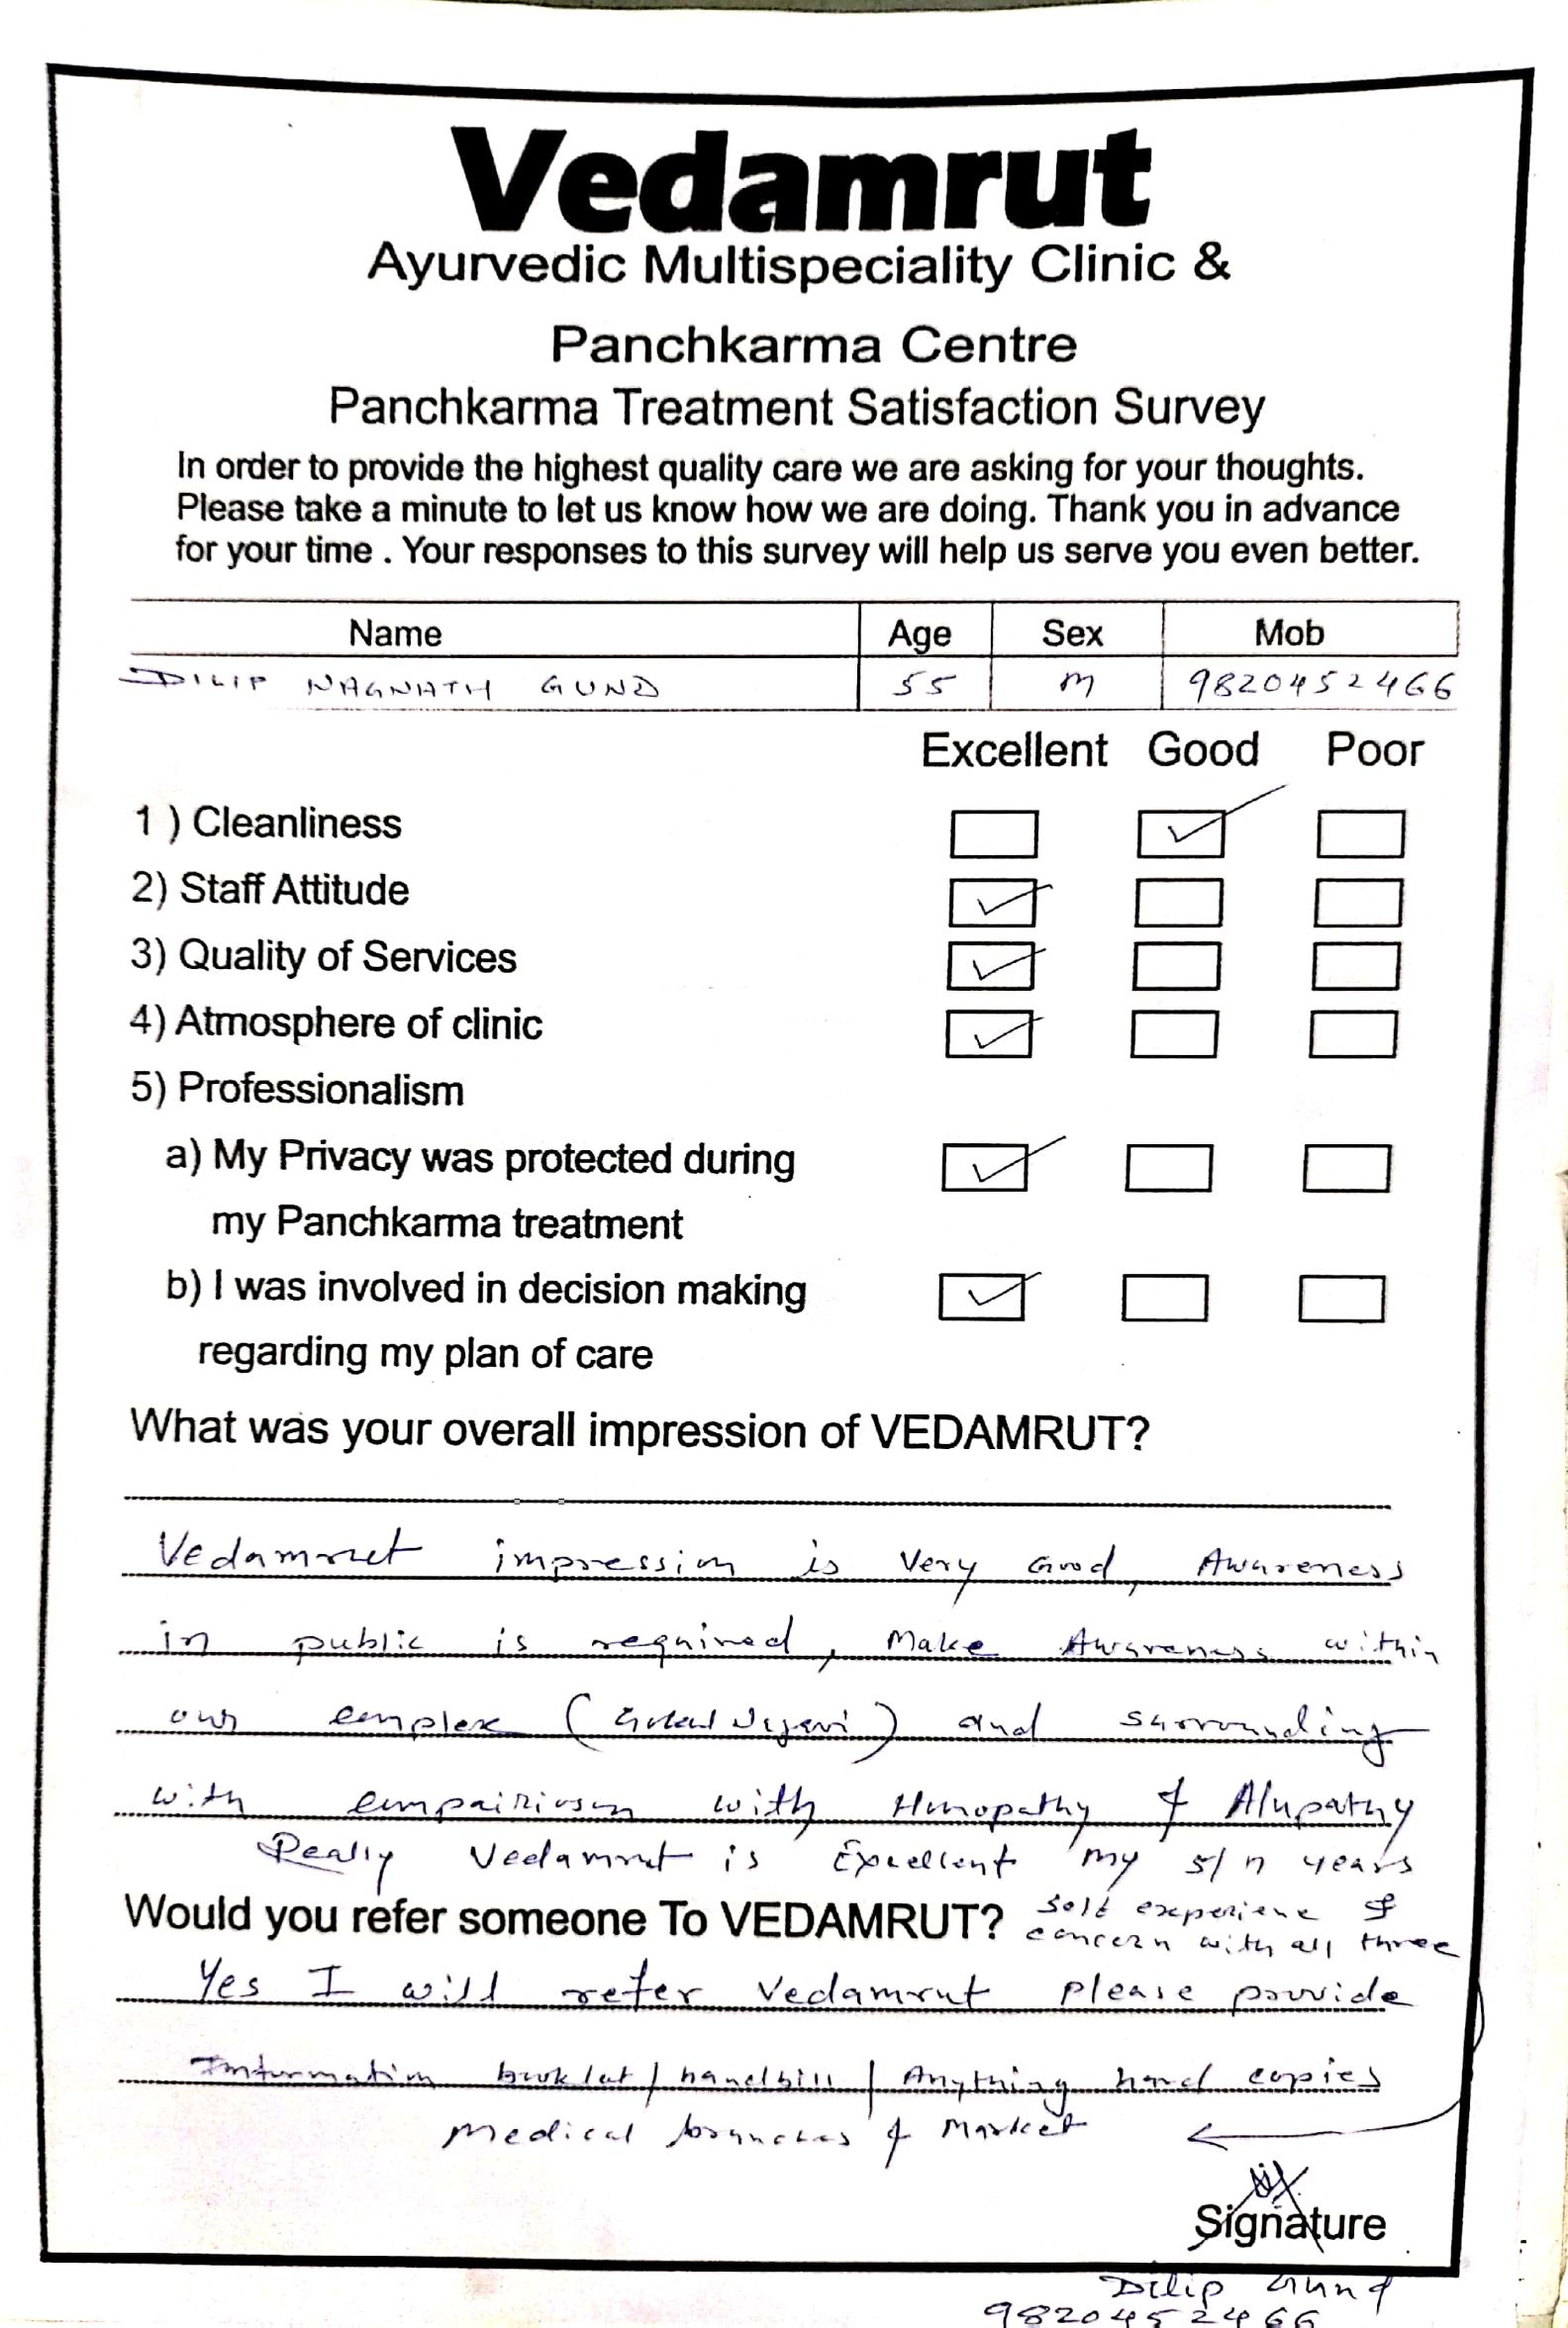 Vedamrut
Ayurvedic Multispeciality Clinic &
Panchkarma Centre
Panchkarma Treatment Satisfaction Survey
In order to provide the highest quality care we are asking for your thoughts.
Please take a minute to let us know how we are doing. Thank you in advance
for your time . Your responses to this survey will help us serve you even better.
Name Age Sex Mob
DILIP NAGNATH GUND 55 M 9820452466
Excellent Good Poor
1 ) Cleanliness
2) Staff Attitude
3) Quality of Services
4) Atmosphere of clinic
5) Professionalism
a) My Privacy was protected during
my Panchkarma treatment
b) I was involved in decision making
regarding my plan of care
What was your overall impression of VEDAMRUT?
Vedamrut impression is Very Good, Awareness
in public is required, Make Awareness within
our complex ( ) and surrounding
with with & 
Really Vedamrut is Excellent my years
Would you refer someone To VEDAMRUT?
experience &
concern with all three
Yes I will refer Vedamrut please provide
Information booklet / handbill / Anything hard copies
medical branches & Market
Signature
Dilip Gund
9820452466